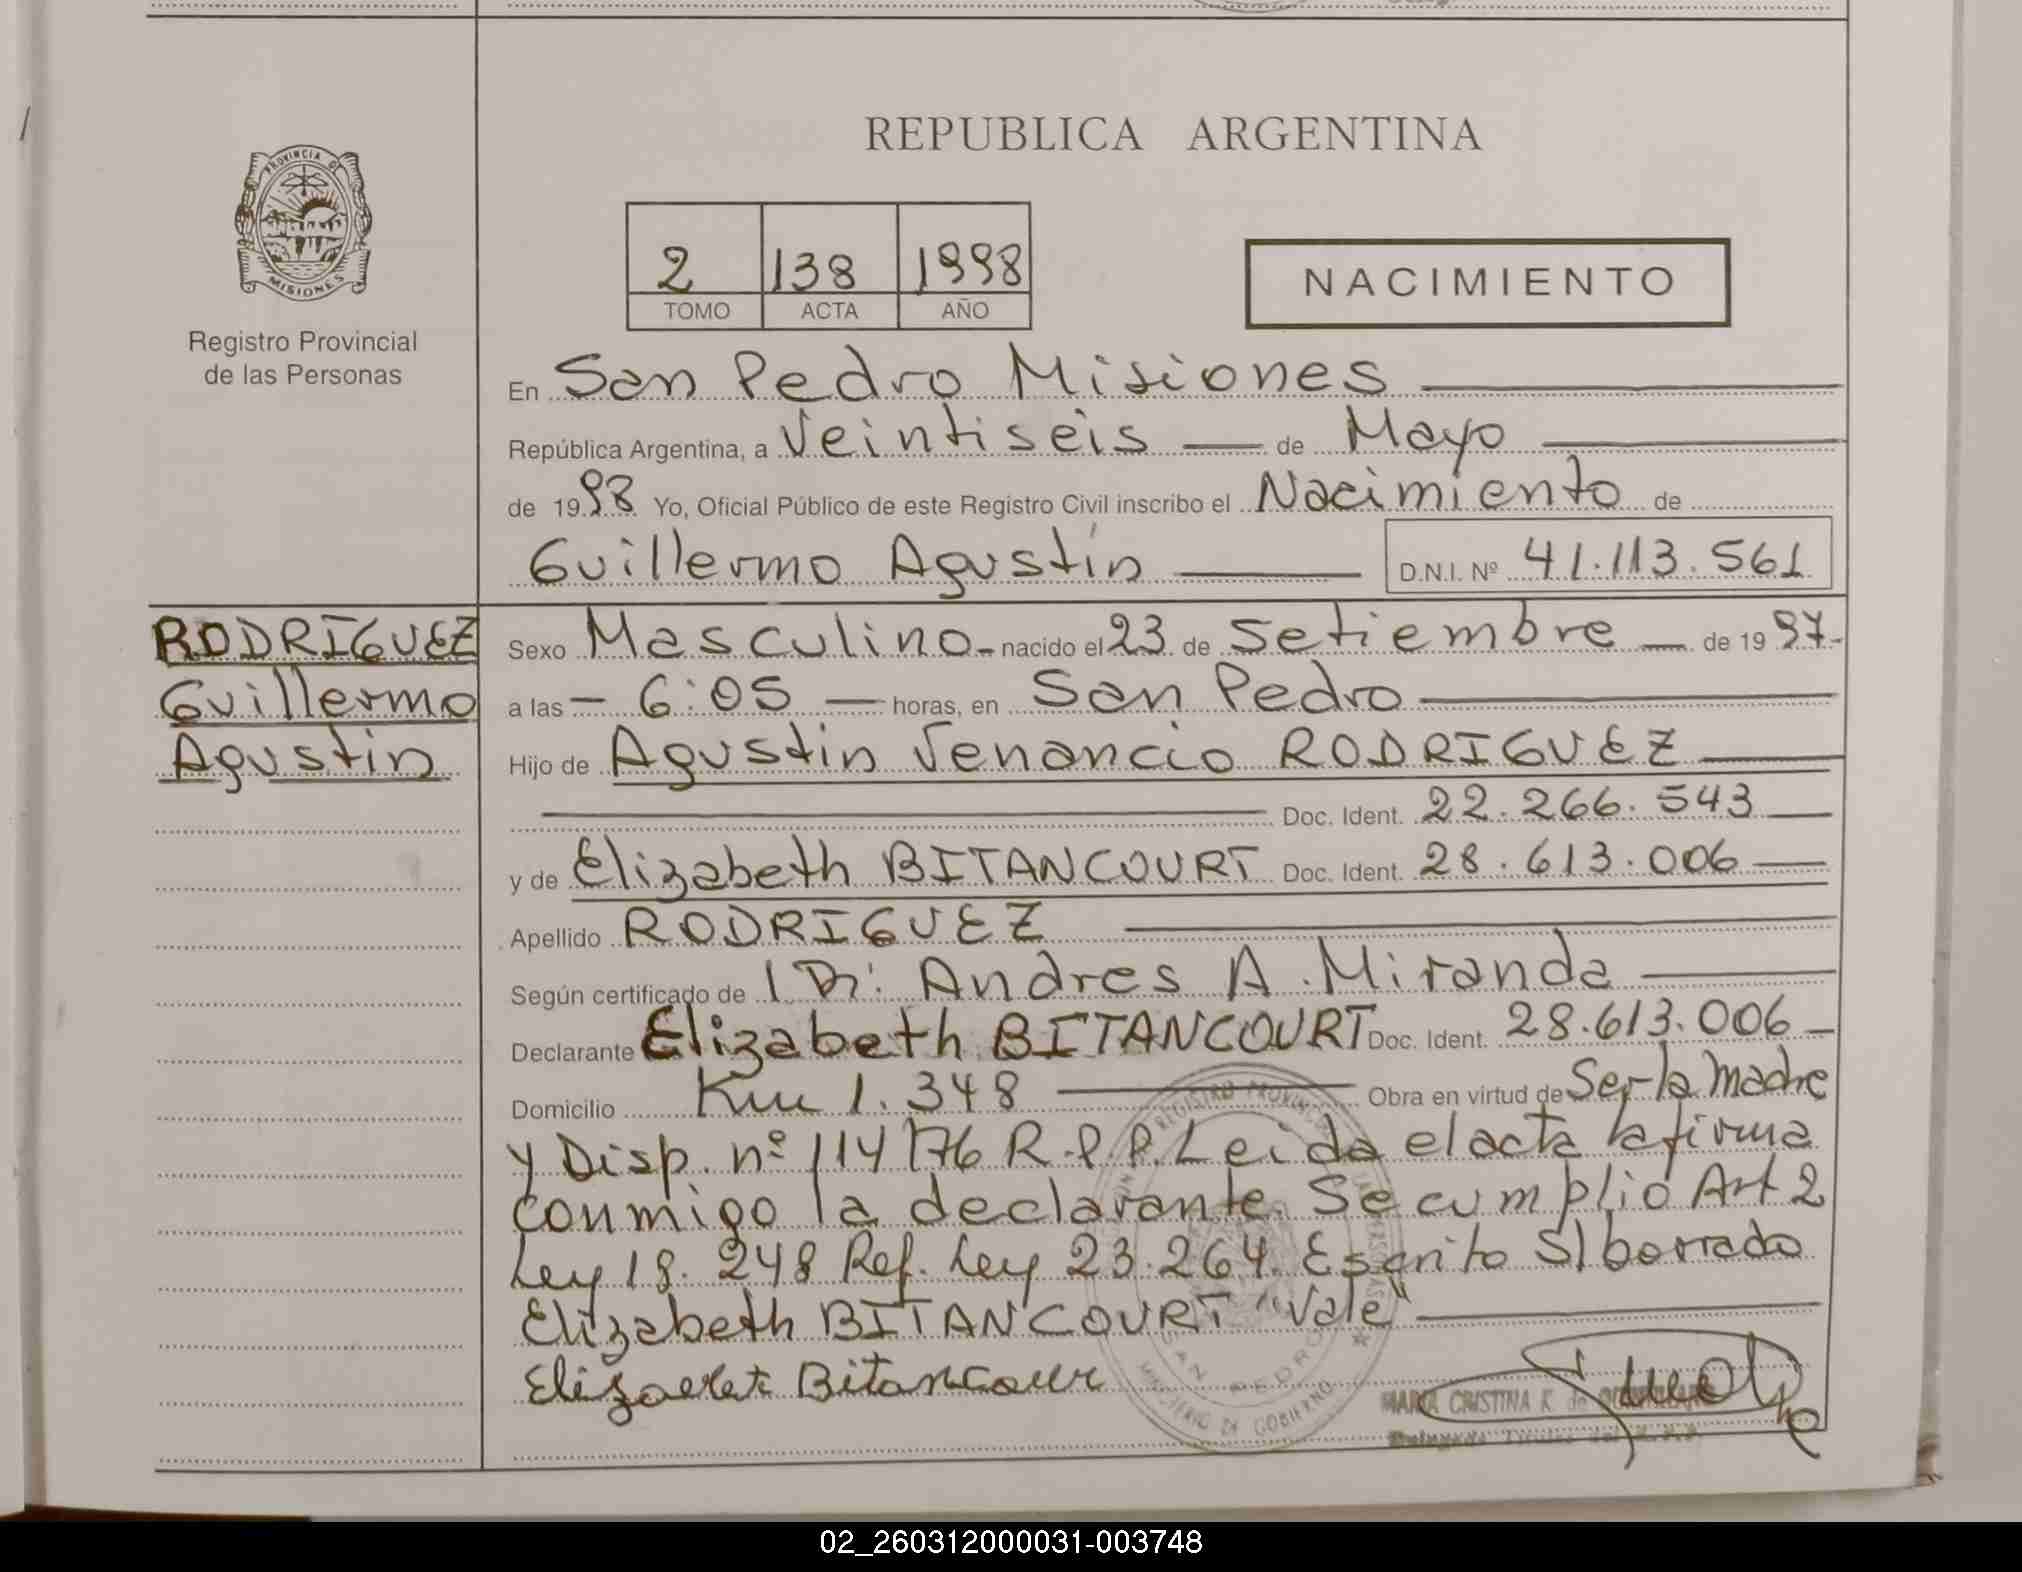 REPUBLICA ARGENTINA
PROVINCIA DE
MISIONES
Registro Provincial
de las Personas
2 138 1998
TOMO ACTA AÑO
NACIMIENTO
En San Pedro Misiones
República Argentina, a Veintiseis de Mayo
de 1998 Yo, Oficial Público de este Registro Civil inscribo el Nacimiento de
Guillermo Agustín D.N.I. Nº 41.113.561
RODRIGUEZ
Guillermo
Agustín
Sexo Masculino - nacido el 23 de Setiembre de 1997-
a las - 6:05 - horas, en San Pedro
Hijo de Agustin Venancio RODRIGUEZ
Doc. Ident. 22.266.543
y de Elizabeth BITANCOURT Doc. Ident. 28.613.006
Apellido RODRIGUEZ
Según certificado de 1 Dr: Andres A. Miranda
Declarante Elizabeth BITANCOURT Doc. Ident. 28.613.006
Domicilio Km 1.348 Obra en virtud de Ser la madre
y Disp. nº 114/76 R.P.P. Leida el acta la firma
conmigo la declarante. Se cumplio Art 2
Ley 18.248 Ref. Ley 23.264. Escrito S/borrado
Elizabeth BITANCOURT "Vale"
Elizabeth Bitancour
REGISTRO PROVINCIAL DE LAS PERSONAS
SAN PEDRO
MINISTERIO DE GOBIERNO
MARIA CRISTINA K. de
02_260312000031-003748